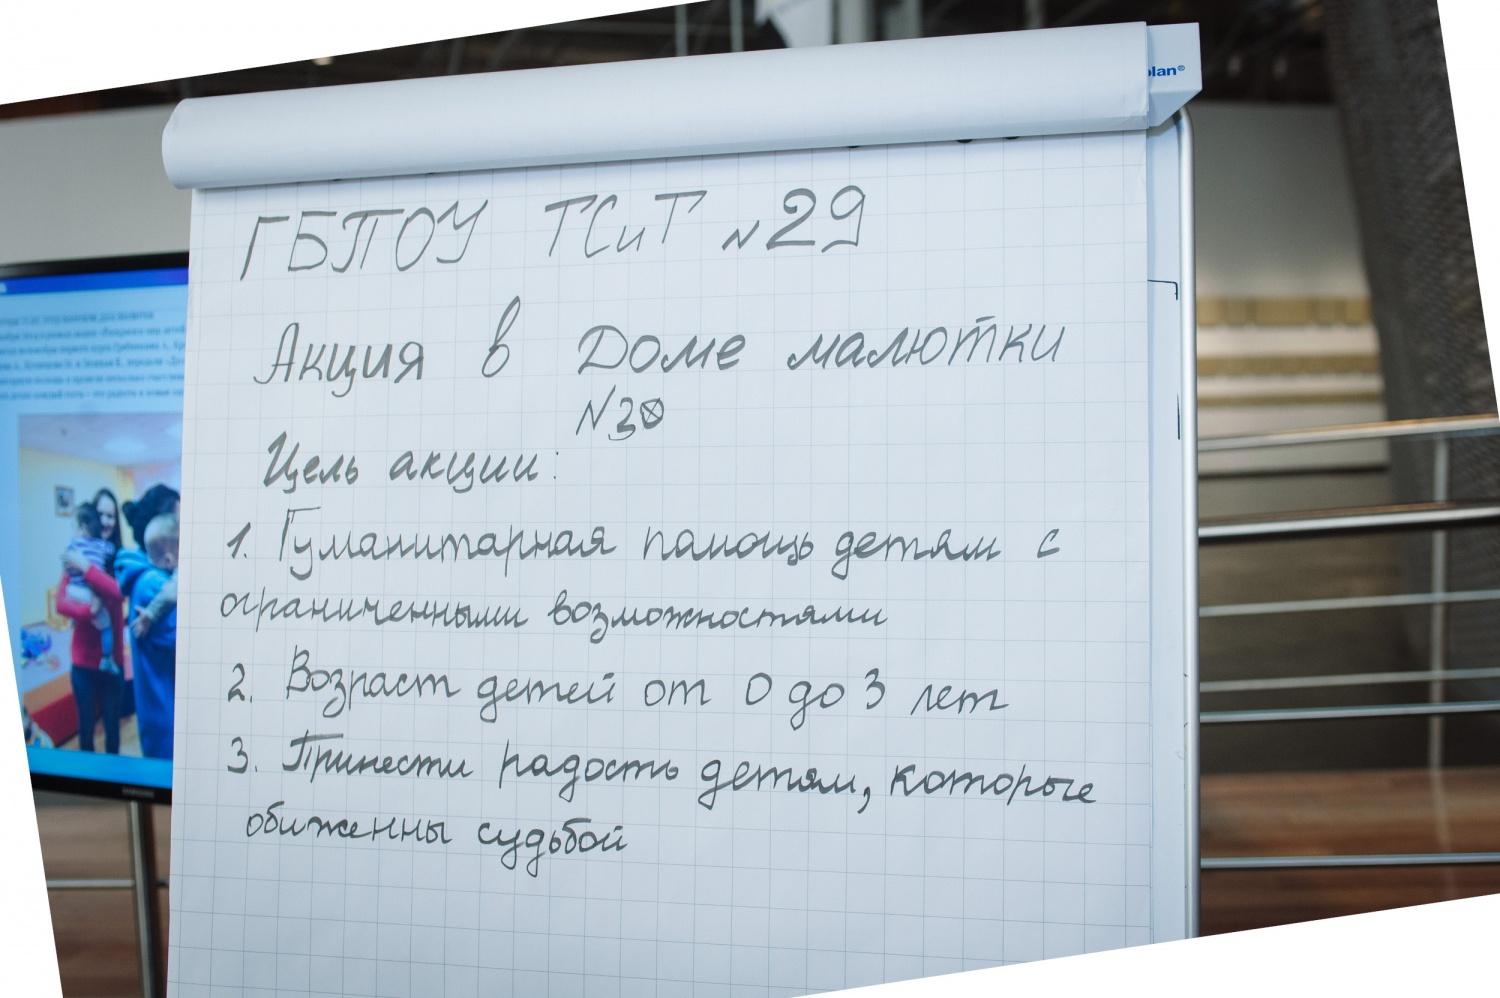 plan®
ГБПОУ ТСиТ №29
Акция в Доме малютки
№3
Цель акции:
1. Гуманитарная помощь детям с
ограниченными возможностями
2. Возраст детей от 0 до 3 лет
3. Принести радость детям, которые
обиженны судьбой
SAMSUNG